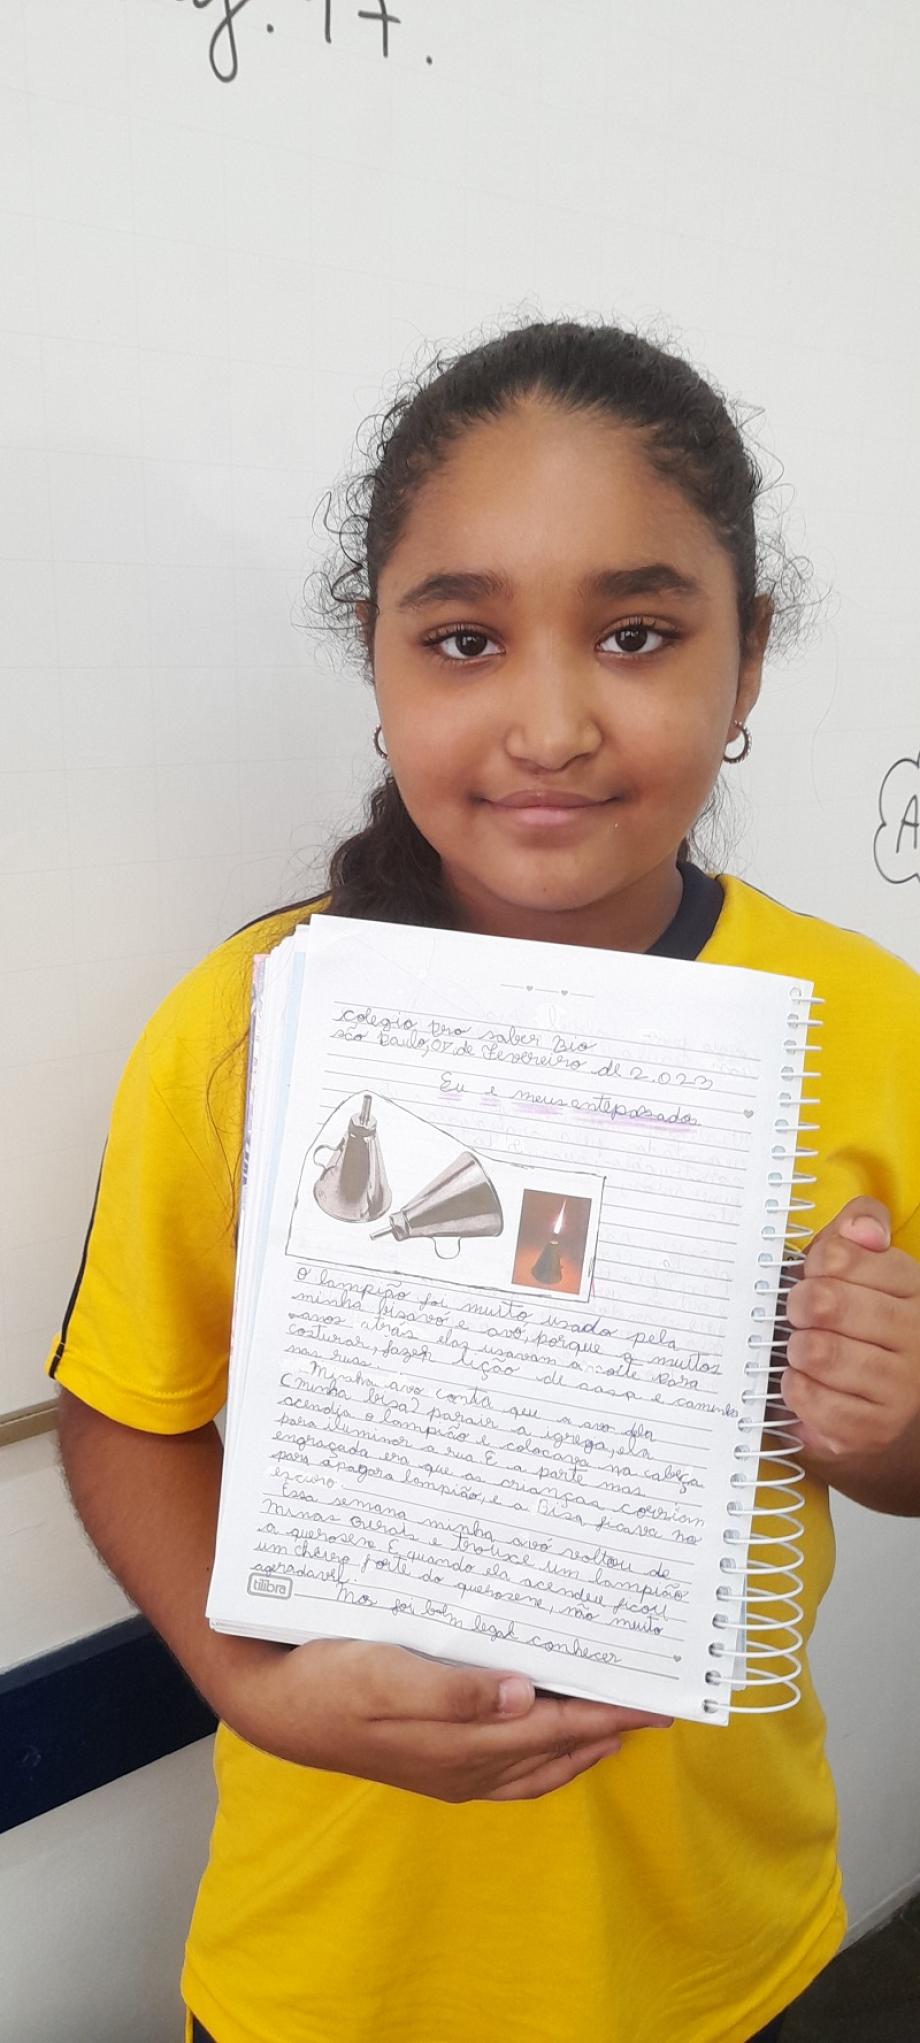 g. 17.
A
colegio pro saber Bio
São Paulo, 07 de Fevereiro de 2.023
Eu e meus antepassados
O lampião foi muito usado pela
minha bisavó e avó, porque a muitos
anos atrás elas usavam a noite para
costurar, fazer lição de casa e caminha
nas ruas.
Minha avo conta que a avo dela
(minha bisa) para ir a igreja, ela
acendia o lampião e colocava na cabeça
para iluminar a rua. E a parte mas
engraçada era que as crianças corriam
para apagar o lampião, e a Bisa ficava no
escuro.
Essa semana minha avó voltou de
Minas Gerais e trouxe um lampião
a querosene. E quando ela acendeu ficou
um cheiro forte do querosene, não muito
agradavel.
Mas foi bem legal conhecer
tilibra